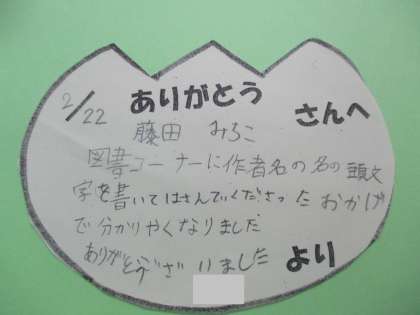 2/22
ありがとう
さんへ
藤田 みちこ
図書コーナーに作者名の名の頭文
字を書いてはさんでくださったおかげ
で分かりやくなりました
ありがとうございました
より